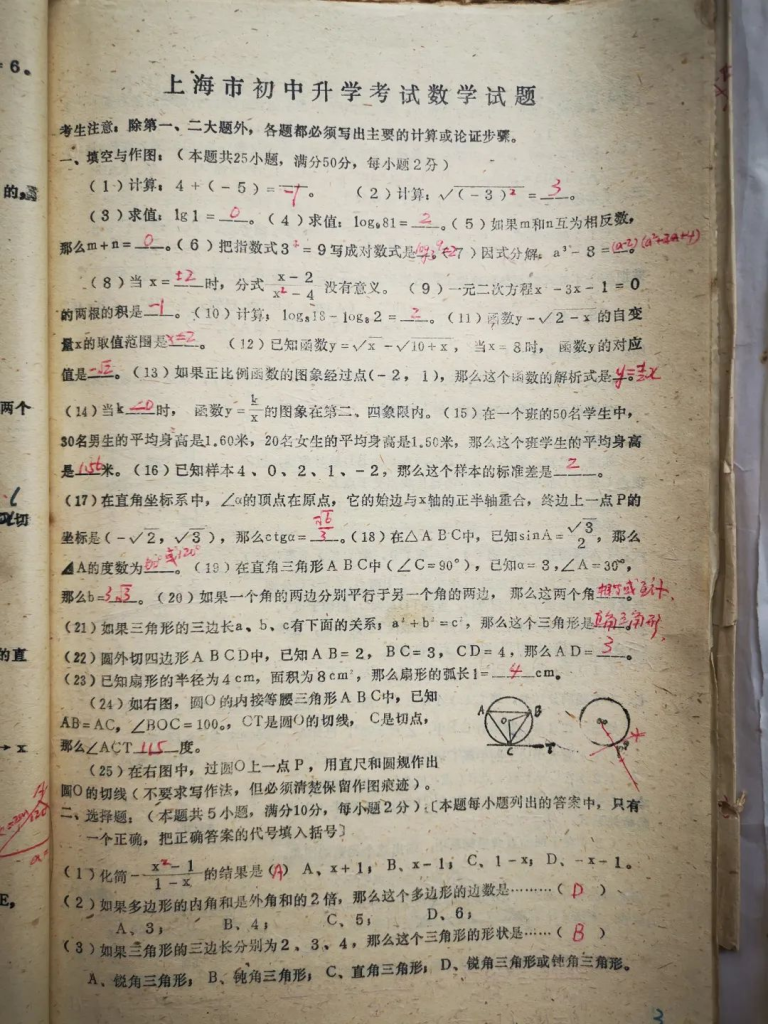 = 6。
上海市初中升学考试数学试题
考生注意：除第一、二大题外，各题都必须写出主要的计算或论证步骤。
一、填空与作图：（本题共25小题，满分50分，每小题2分）
（1）计算：4＋（－5）＝ -1 。 （2）计算：√(－3)² ＝ 3 。
（3）求值：lg1＝ 0 。（4）求值：log₉81＝ 2 。（5）如果m和n互为相反数，
那么m＋n＝ 0 。（6）把指数式3²＝9写成对数式是 。（7）因式分解：a³－8＝(a-2)(a²+2a+4)。
（8）当x＝ ±2 时，分式 (x－2)/(x²－4) 没有意义。 （9）一元二次方程x²－3x－1＝0
的两根的积是 -1 。（10）计算：log₃18－log₃2＝ 2 。（11）函数y＝√2－x 的自变
量x的取值范围是 。 （12）已知函数y＝√x－√10＋x，当x＝8时，函数y的对应
值是 -√2 。（13）如果正比例函数的图象经过点（－2，1），那么这个函数的解析式是 。
（14）当k <0 时， 函数y＝k/x的图象在第二、四象限内。（15）在一个班的50名学生中，
30名男生的平均身高是1.60米，20名女生的平均身高是1.50米，那么这个班学生的平均身高
是 1.56 米。（16）已知样本4、0、2、1、－2，那么这个样本的标准差是 2 。
（17）在直角坐标系中，∠α的顶点在原点，它的始边与x轴的正半轴重合，终边上一点P的
坐标是（－√2，√3），那么ctgα＝ 。（18）在△ABC中，已知sinA＝√3/2，那么
∠A的度数为 60°或120° 。（19）在直角三角形ABC中（∠C＝90°），已知a＝3，∠A＝30°，
那么b＝ 3√3 。（20）如果一个角的两边分别平行于另一个角的两边，那么这两个角 相等或互补。
（21）如果三角形的三边长a、b、c有下面的关系：a²＋b²＝c²，那么这个三角形是 直角三角形。
（22）圆外切四边形ABCD中，已知AB＝2，BC＝3，CD＝4，那么AD＝ 3 。
（23）已知扇形的半径为4cm，面积为8cm²，那么扇形的弧长l＝ 4 cm。
（24）如右图，圆O的内接等腰三角形ABC中，已知
AB＝AC，∠BOC＝100。，CT是圆O的切线，C是切点，
那么∠ACT 115 度。
A B O C T
（25）在右图中，过圆O上一点P，用直尺和圆规作出
圆O的切线（不要求写作法，但必须清楚保留作图痕迹）。
二、选择题：（本题共5小题，满分10分，每小题2分）〔本题每小题列出的答案中，只有
一个正确，把正确答案的代号填入括号〕
（1）化简－(x²－1)/(1－x)的结果是（A） A、x＋1； B、x－1； C、1－x； D、－x－1。
（2）如果多边形的内角和是外角和的2倍，那么这个多边形的边数是………（ D ）
A、3； B、4； C、5； D、6；
（3）如果三角形的三边长分别为2、3、4，那么这个三角形的形状是……（ B ）
A、锐角三角形； B、钝角三角形； C、直角三角形； D、锐角三角形或钝角三角形。
3